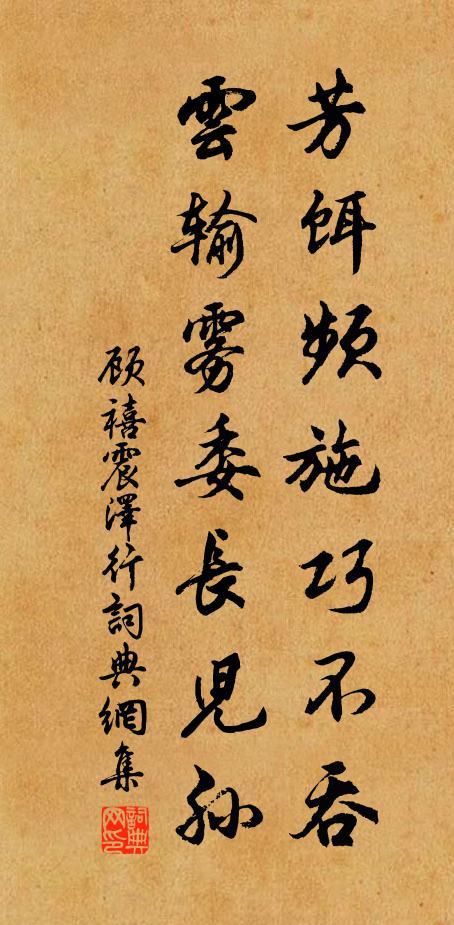 芳餌頻施巧不吞
雲輸雾委長兒孙
顾禧震澤行詞典網集
詞典网印